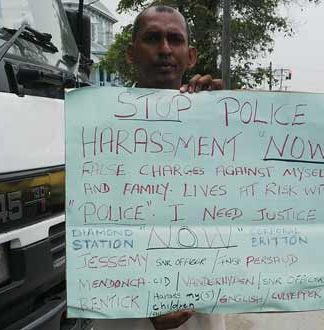 45
STOP POLICE
HARASSMENT "NOW
FALSE CHARGES AGAINST MYSEL
AND FAMILY. LIVES AT RISK WIT
"POLICE". I NEED JUSTICE
DIAMOND STATION "NOW" CORPORAL BRITTON
JESSEMY SNR OFFICER / INSP PERSAUD
MENDONCA-CID / VANDERHYDEN / SNR OFFICER
BENTICK / Harass my (5) children / ENGLISH / CULPEPPER